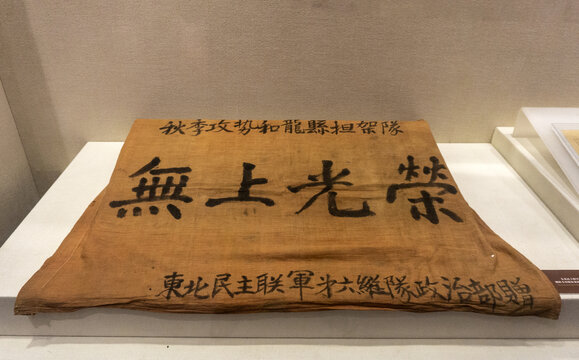 秋季攻势和龍縣担架隊
無上光榮
東北民主联軍第六縱隊政治部贈